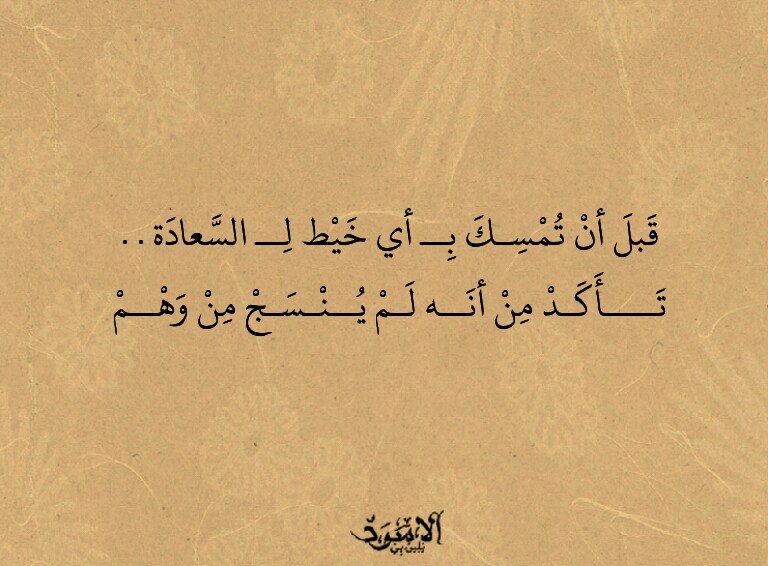 قَبلَ أنْ تُمْسِـكَ بِــ أي خَيْط لِــ السَّعادَة . .
تَــــأَكَـدْ مِنْ أنَــه لَـمْ يُـنْـسَـجْ مِنْ وَهْــمْ